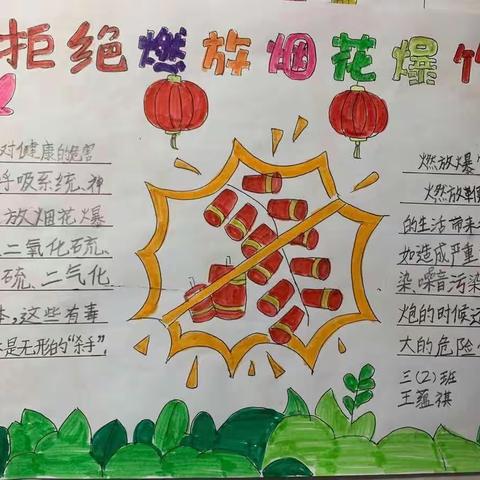 拒绝燃放烟花爆竹
对健康的危害
呼吸系统、神
放烟花爆
二氧化硫、
硫、二气化
这些有毒
是无形的"杀手",
燃放爆
燃放鞭
的生活带来
如造成严重
染噪音污染
炮的时候还
大的危险
三(2)班
王蕴祺